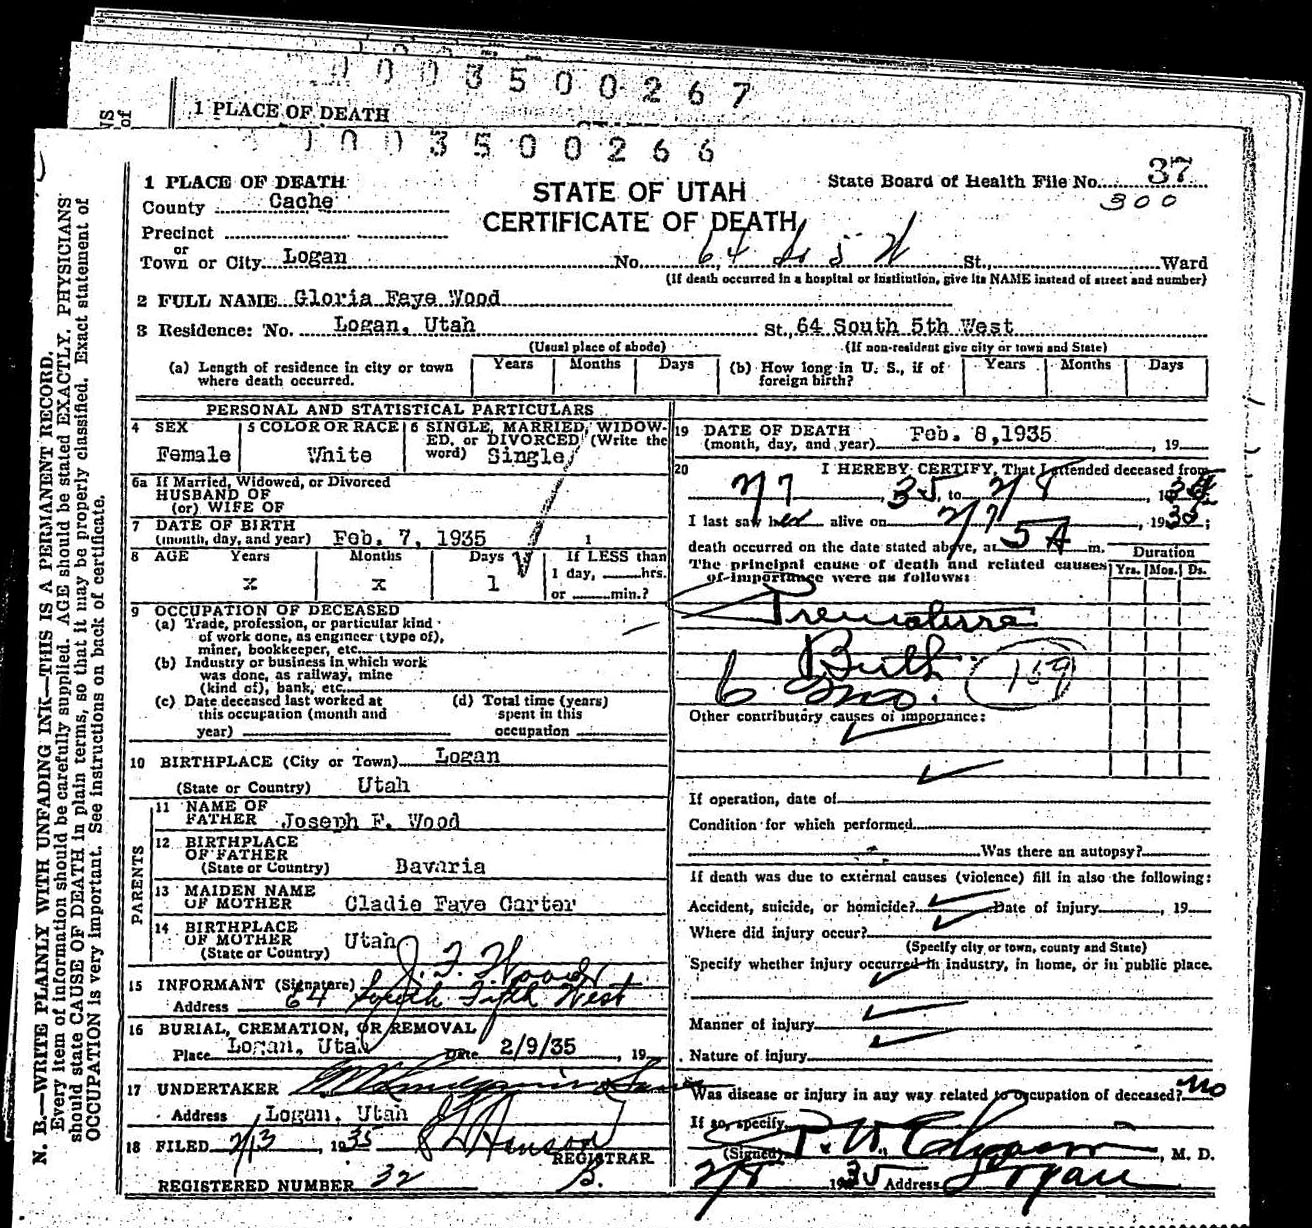 0 0 3 5 0 0 2 6 7
1 PLACE OF DEATH
0 0 3 5 0 0 2 6 6
1 PLACE OF DEATH
County Cache
Precinct
or
Town or City Logan
STATE OF UTAH
CERTIFICATE OF DEATH
State Board of Health File No. 37
300
No. 64 So 5 W St., Ward
(If death occurred in a hospital or institution, give its NAME instead of street and number)
2 FULL NAME Gloria Faye Wood
3 Residence: No. Logan, Utah St., 64 South 5th West
(Usual place of abode) (If non-resident give city or town and State)
(a) Length of residence in city or town where death occurred. Years Months Days (b) How long in U. S., if of foreign birth? Years Months Days
PERSONAL AND STATISTICAL PARTICULARS
4 SEX
Female
5 COLOR OR RACE
White
6 SINGLE, MARRIED, WIDOW-
ED, or DIVORCED (Write the
word) Single
6a If Married, Widowed, or Divorced
HUSBAND OF
(or) WIFE OF
7 DATE OF BIRTH
(month, day, and year) Feb. 7, 1935
8 AGE Years Months Days If LESS than
x x 1 1 day, hrs.
or min.?
9 OCCUPATION OF DECEASED
(a) Trade, profession, or particular kind
of work done, as engineer (type of),
miner, bookkeeper, etc.
(b) Industry or business in which work
was done, as railway, mine
(kind of), bank, etc.
(c) Date deceased last worked at
this occupation (month and
year)
(d) Total time (years)
spent in this
occupation
10 BIRTHPLACE (City or Town) Logan
(State or Country) Utah
PARENTS
11 NAME OF
FATHER Joseph F. Wood
12 BIRTHPLACE
OF FATHER
(State or Country) Bavaria
13 MAIDEN NAME
OF MOTHER Cladie Faye Carter
14 BIRTHPLACE
OF MOTHER Utah
(State or Country)
15 INFORMANT (Signature) J. F. Wood
Address 64 South Fifth West
16 BURIAL, CREMATION, OR REMOVAL
Place Logan, Utah Date 2/9/35, 19
17 UNDERTAKER
Address Logan, Utah
18 FILED 2/13, 1935
REGISTRAR
REGISTERED NUMBER 32 B.
19 DATE OF DEATH
(month, day, and year) Feb. 8,1935, 19
20 I HEREBY CERTIFY, That I attended deceased from
2/7, 35, to 2/8, 19
I last saw her alive on 2/7, 19 ;
death occurred on the date stated above, at 5 A m.
Duration
Yrs. Mos. Ds.
The principal cause of death and related causes
of importance were as follows:
Premature
Birth
6 mo. 159
Other contributory causes of importance:
If operation, date of
Condition for which performed
Was there an autopsy?
If death was due to external causes (violence) fill in also the following:
Accident, suicide, or homicide? Date of injury, 19
Where did injury occur?
(Specify city or town, county and State)
Specify whether injury occurred in industry, in home, or in public place.
Manner of injury
Nature of injury
Was disease or injury in any way related to occupation of deceased? No
If so, specify
(Signed), M. D.
2/8 1935 Address Logan
N. B.—WRITE PLAINLY WITH UNFADING INK—THIS IS A PERMANENT RECORD.
Every item of information should be carefully supplied. AGE should be stated EXACTLY. PHYSICIANS
should state CAUSE OF DEATH in plain terms, so that it may be properly classified. Exact statement of
OCCUPATION is very important. See instructions on back of certificate.